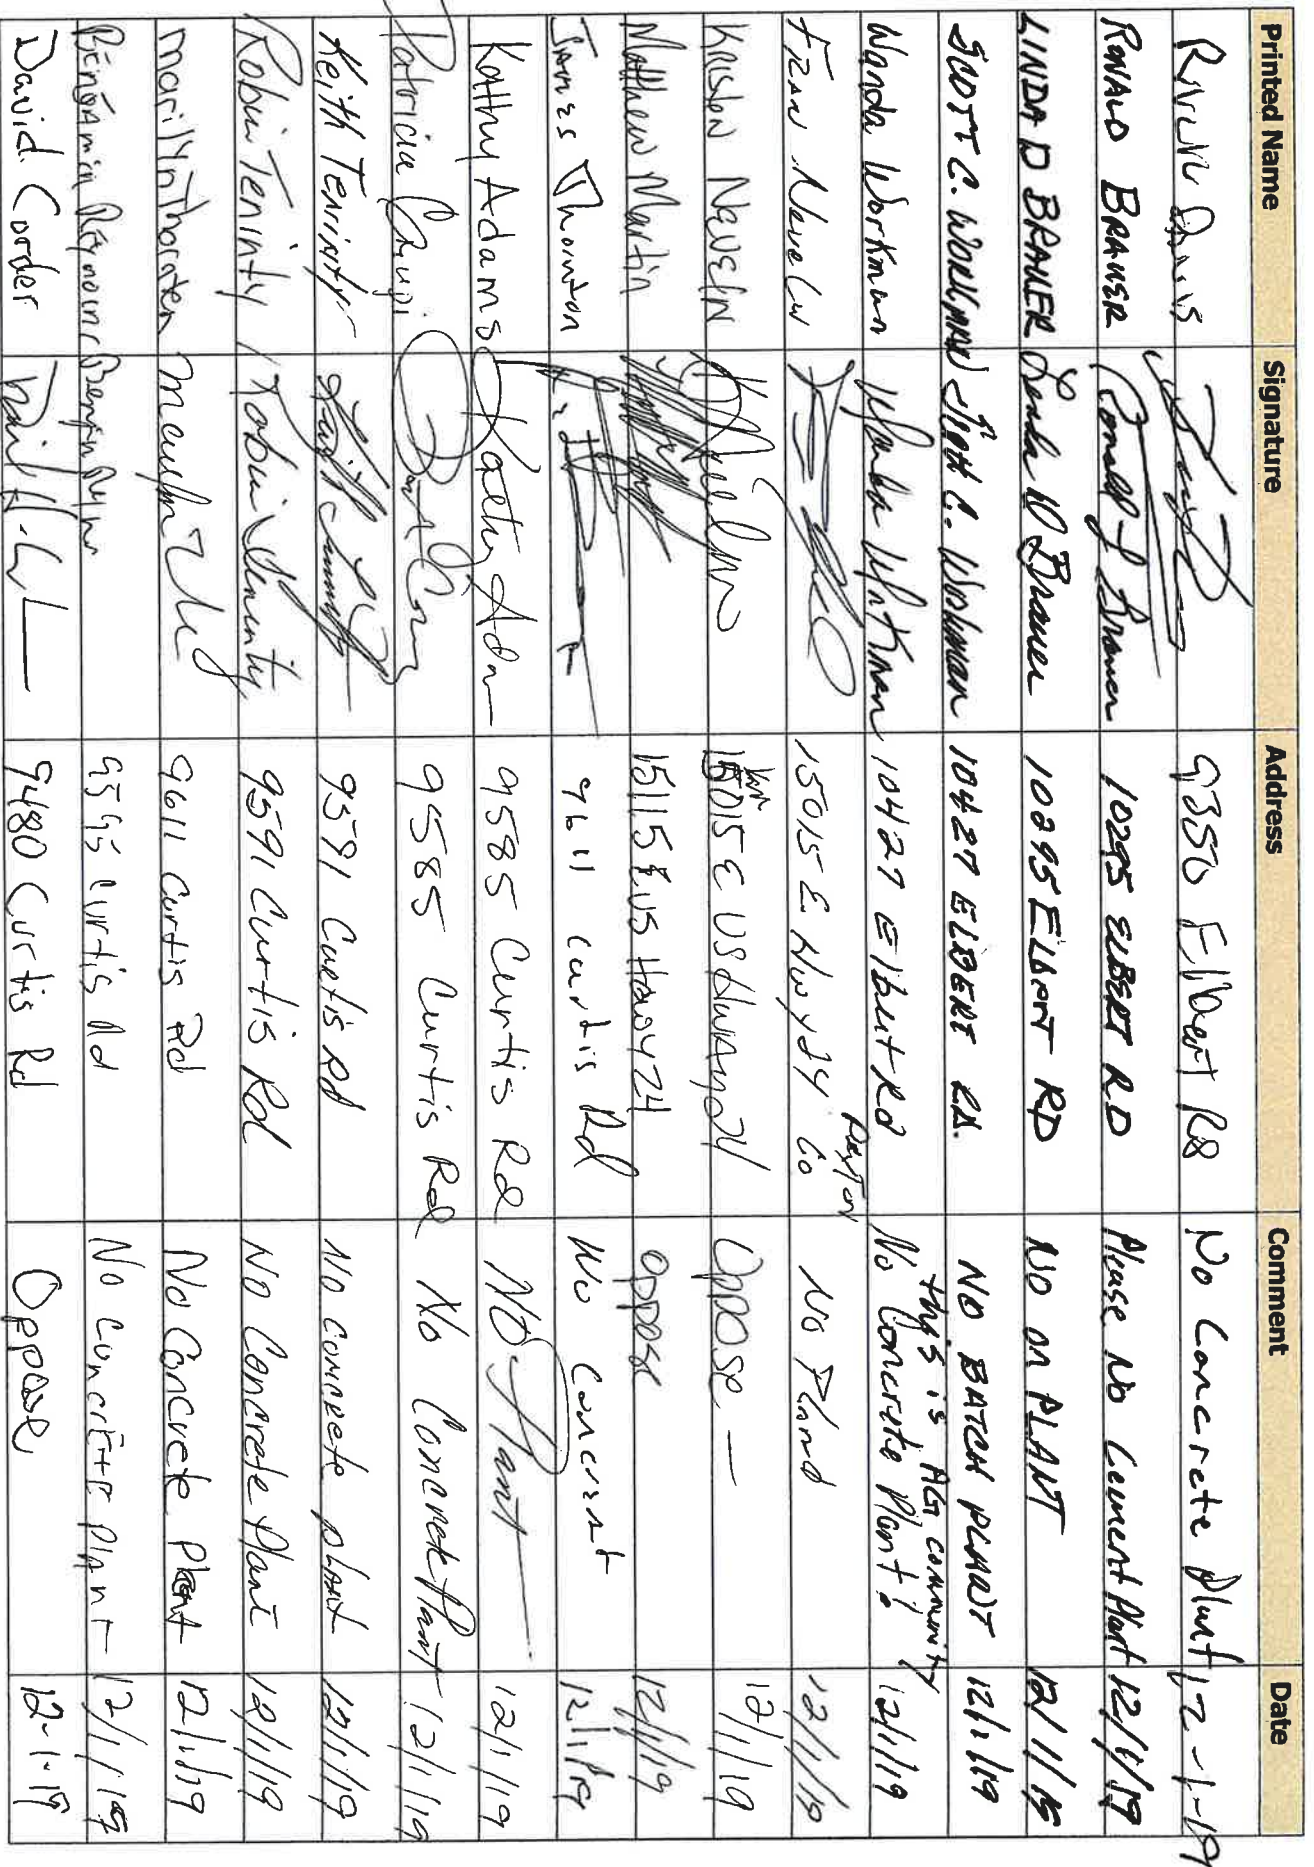 Printed Name Signature Address Comment Date
Davis 9350 Elbert Rd No Concrete Plant 12-1-19
RONALD BRAUER Ronald J Brauer 10295 ELBERT RD Please No Cement Plant 12/1/19
LINDA D BRAUER Linda D Brauer 10295 ELBERT RD NO on PLANT 12/1/19
SCOTT C. WORKMAN Scott C. Workman 10427 ELBERT RD. NO BATCH PLANT 12/1/19
this is AG community
Wanda Workman Wanda Workman 10427 Elbert Rd No Concrete Plant! 12/1/19
Peyton
15015 E Hwy 24 Co No 12/1/19
Kristen NevelN 15015 E US Highway 24 Oppose — 12/1/19
Matthew Martin 15115 E US 24 oppose 12/1/19
James Thornton 9611 Curtis Rd No 12/1/19
Kathy Adams Kathy Adams 9585 Curtis Rd No Plant 12/1/19
Patricia 9585 Curtis Rd No Concrete Plant 12/1/19
Keith Teninty 9591 Curtis Rd No concrete plant 12/1/19
Robin Teninty Robin Teninty 9591 Curtis Rd No Concrete Plant 12/1/19
Marilyn 9611 Curtis Rd No Concrete Plant 12/1/19
Curtis Rd No concrete plant 12/1/19
David Corder 9480 Curtis Rd Oppose 12-1-19